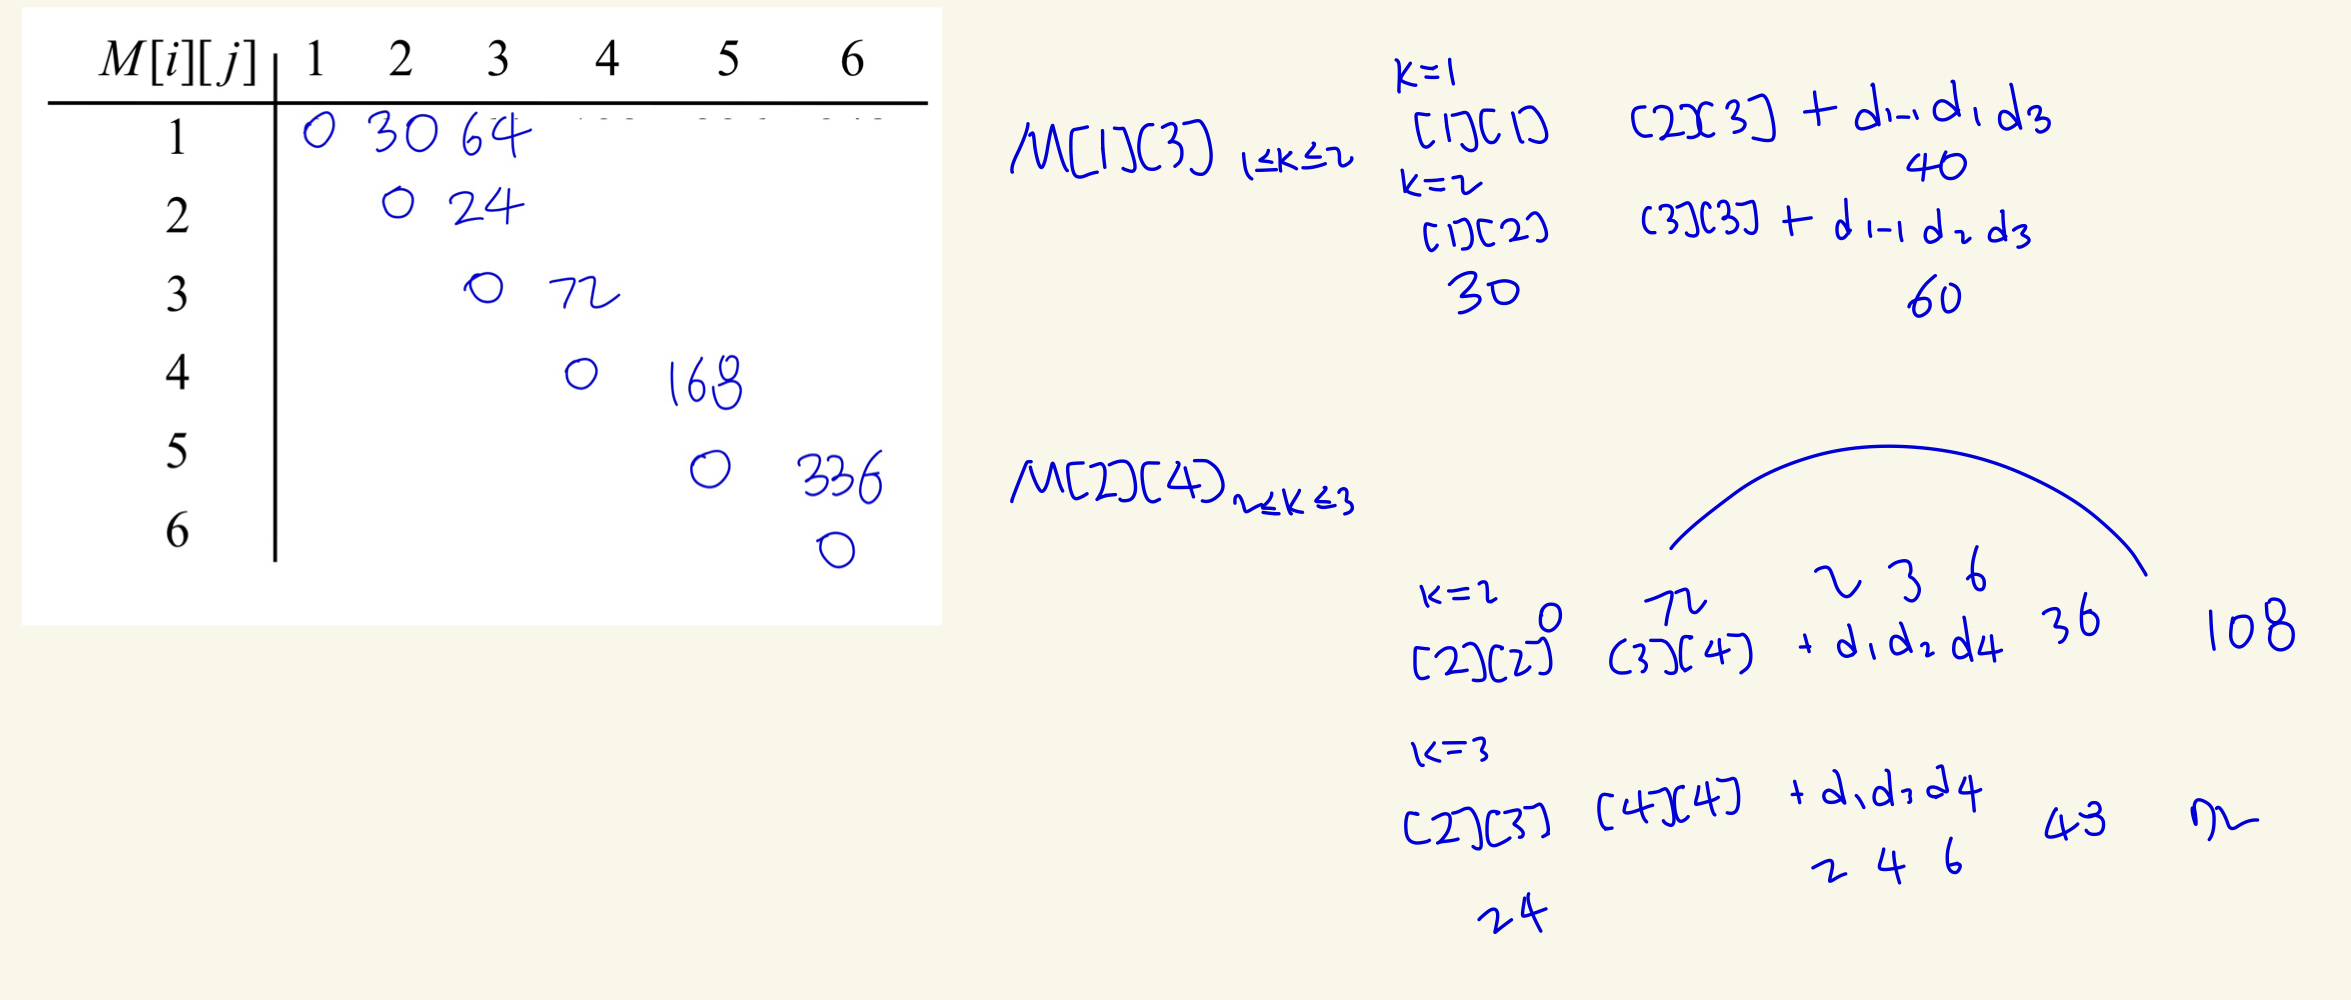 M[i][j] 1 2 3 4 5 6
1 0 30 64
2 0 24
3 0 72
4 0 168
5 0 336
6 0
K=1
M[1][3] 1≤K≤2 [1][1] [2][3] + d1-1 d1 d3
40
K=2
[1][2] [3][3] + d1-1 d2 d3
30 60
M[2][4] 2≤K≤3
K=2 0 72 2 3 6
[2][2] [3][4] + d1 d2 d4 36 108
K=3
[2][3] [4][4] + d1 d3 d4 48
2 4 6
24